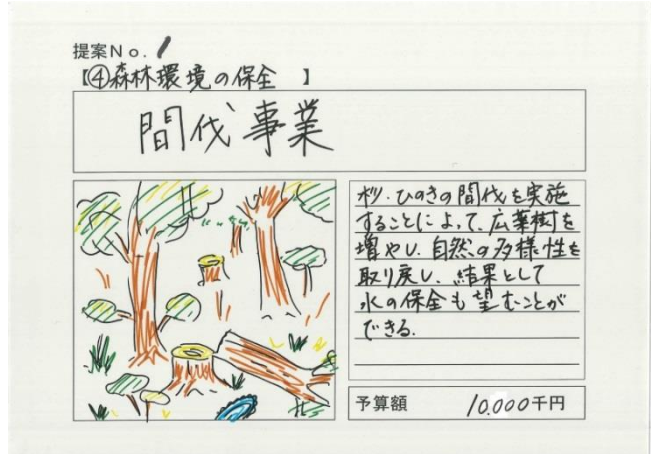 提案No. 1
【④森林環境の保全 】
間伐事業
杉・ひのきの間伐を実施
することによって、広葉樹を
増やし、自然の多様性を
取り戻し、結果として
水の保全も望むことが
できる。
予算額 10,000千円